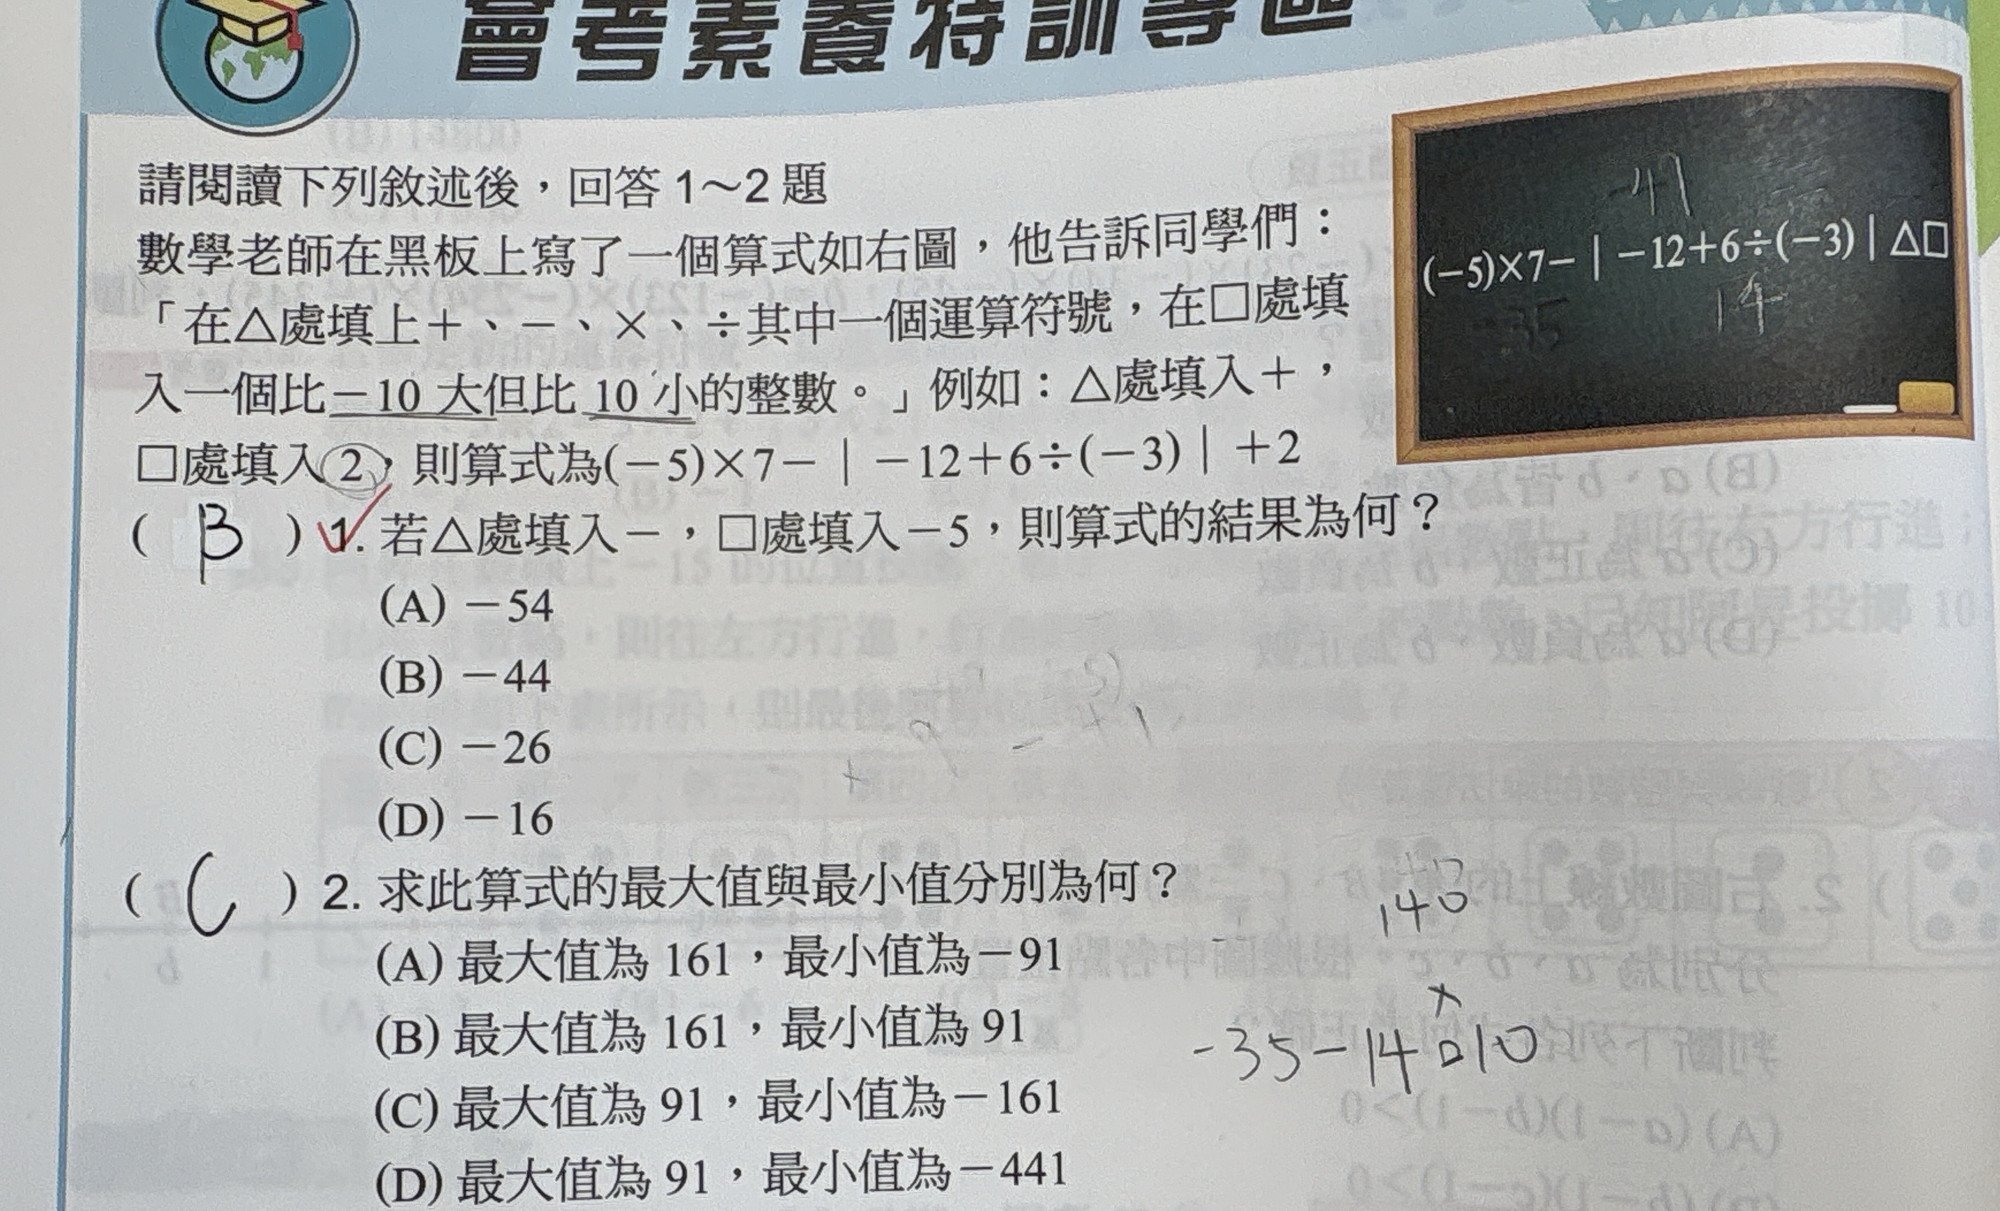 會考素養特訓專區
請閱讀下列敘述後，回答 1～2 題
數學老師在黑板上寫了一個算式如右圖，他告訴同學們：
「在△處填上＋、－、×、÷其中一個運算符號，在□處填
入一個比－10 大但比 10 小的整數。」例如：△處填入＋，
□處填入 2，則算式為(－5)×7－｜－12＋6÷(－3)｜＋2
-49
(－5)×7－｜－12＋6÷(－3)｜△□
-35
14
( B ) 1. 若△處填入－，□處填入－5，則算式的結果為何？
(A) －54
(B) －44
(C) －26
(D) －16
( C ) 2. 求此算式的最大值與最小值分別為何？
(A) 最大值為 161，最小值為－91
(B) 最大值為 161，最小值為 91
(C) 最大值為 91，最小值為－161
(D) 最大值為 91，最小值為－441
140
×
-35-14□10